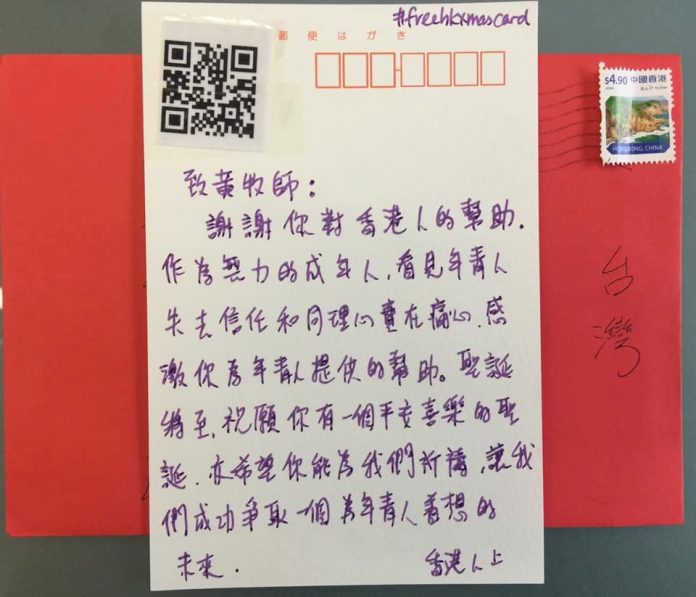 #freehkxmascard
郵便はがき
$4.90 中國香港
HONG KONG, CHINA
台灣
致黃牧師：
謝謝你對香港人的幫助.
作為無力的成年人，看見年青人
失去信任和同理心實在痛心. 感
激你為年青人提供的幫助。聖誕
將至，祝願你有一個平安喜樂的聖
誕. 亦希望你能為我們祈禱，讓我
們成功爭取一個為年青人着想的
未來.
香港人上